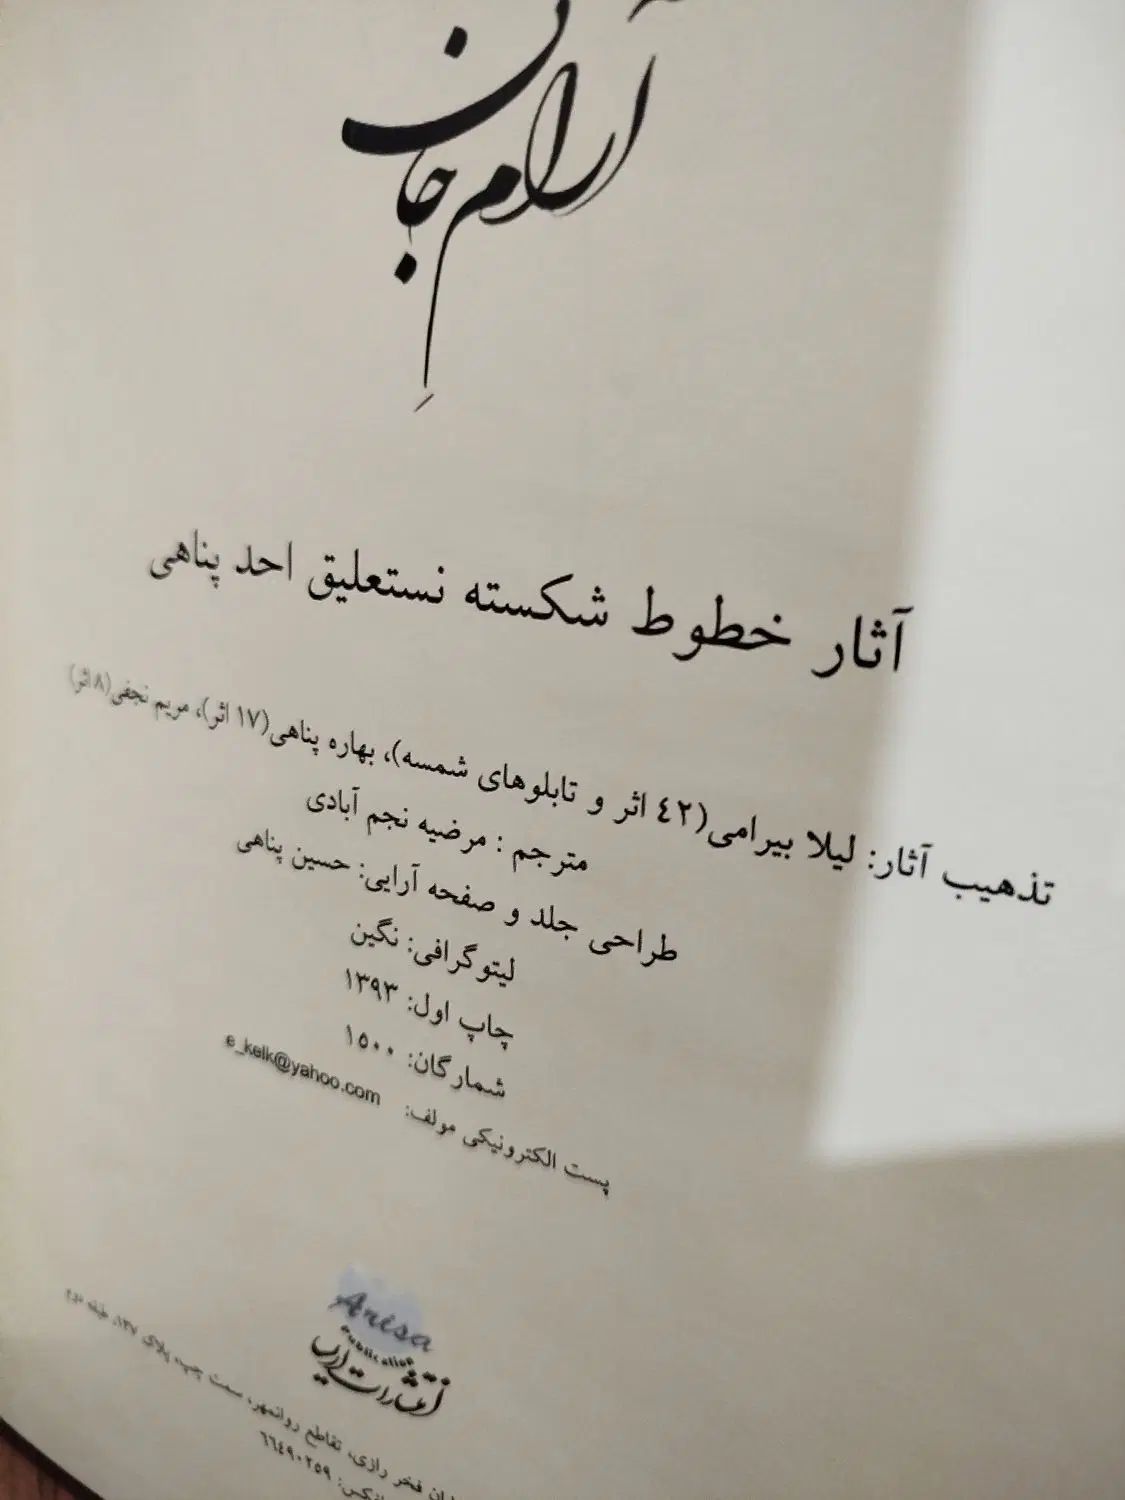 آرامِ جان
آثار خطوط شکسته نستعلیق احد پناهی
تذهیب آثار: لیلا بیرامی(٤٢ اثر و تابلوهای شمسه)، بهاره پناهی(١٧ اثر)، مریم نجفی(٨ اثر)
مترجم : مرضیه نجم آبادی
طراحی جلد و صفحه آرایی: حسین پناهی
لیتوگرافی: نگین
چاپ اول: ١٣٩٣
شمارگان: ١٥٠٠
پست الکترونیکی مولف: e_kelk@yahoo.com
Arisa
Publication
انتشارات آریسا
فخر رازی، تقاطع روانمهر، سمت چپ، پلاک ١٢٧، طبقه دوم
٦٦٤٩٠٢٥٩